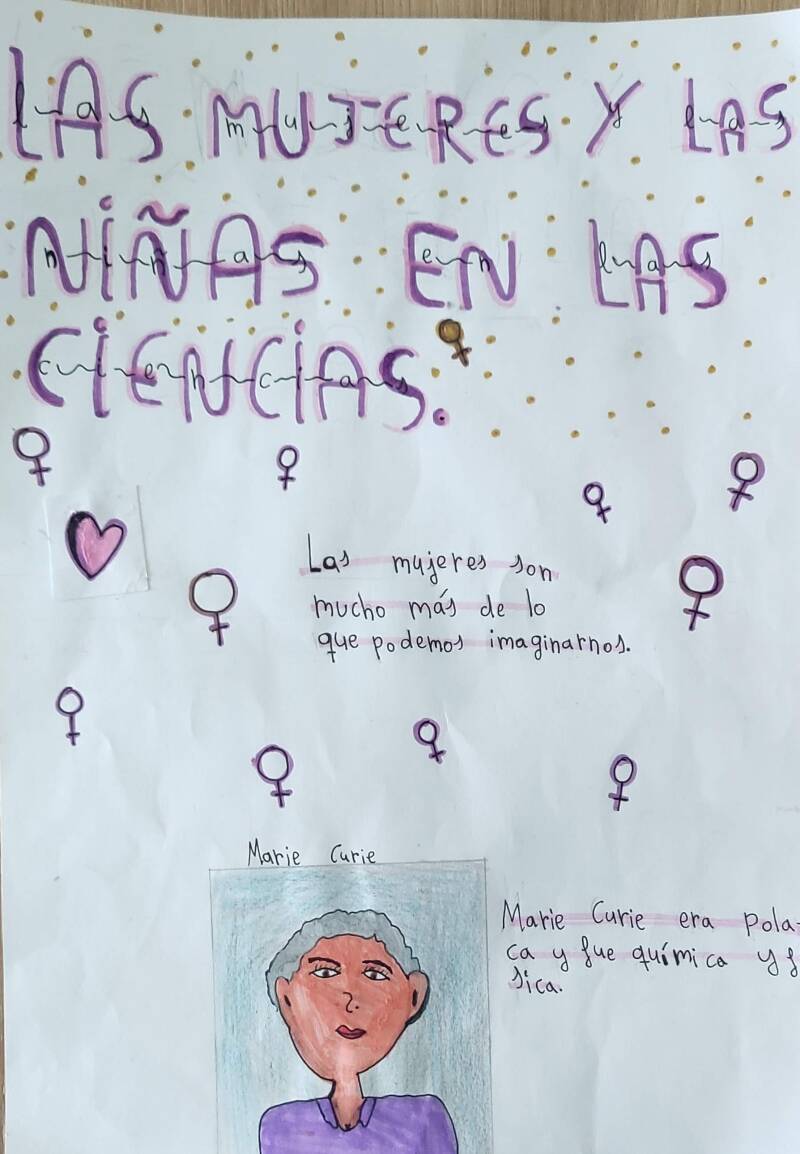 LAS MUJERES Y LAS
NIÑAS EN LAS
CIENCIAS.
Las mujeres son
mucho más de lo
que podemos imaginarnos.
Marie Curie
Marie Curie era pola-
ca y fue química y f
sica.